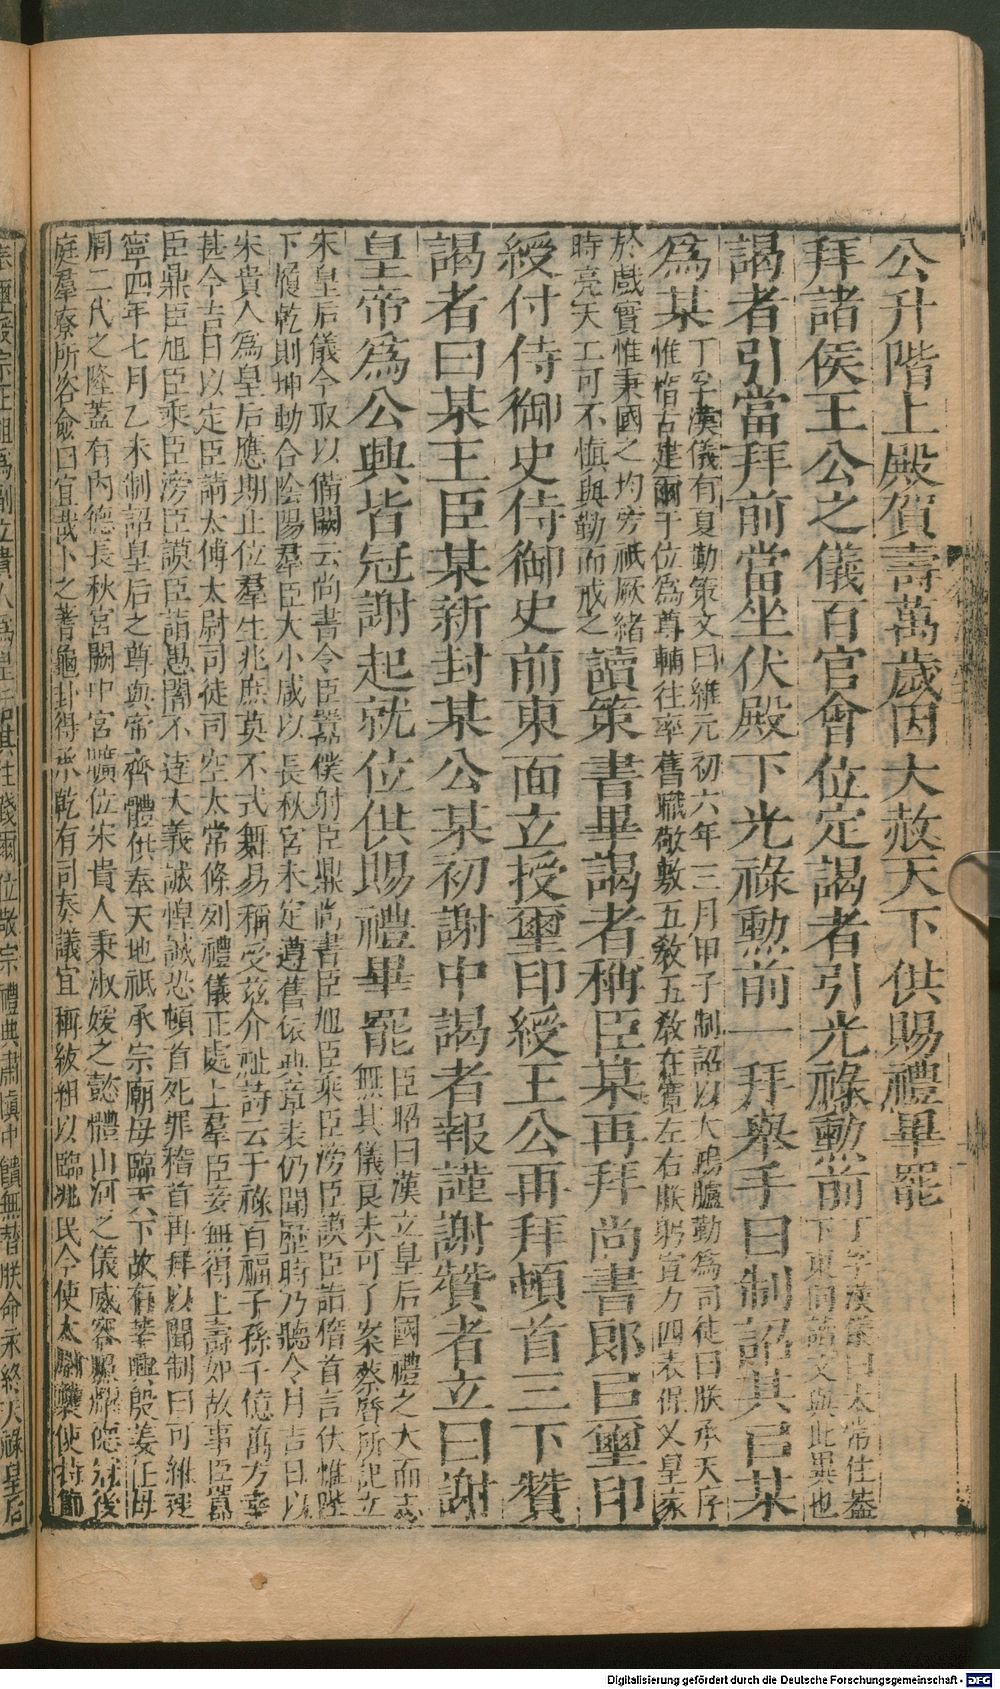 公升階上殿賀壽萬歲因大赦天下供賜禮畢罷
拜諸侯王公之儀百官會位定謁者引光祿勳前
丁孚漢儀曰太常住蓋
下東向讀文與此異也
謁者引當拜前當坐伏殿下光祿勳前一拜舉手曰制詔其以某
為某
丁孚漢儀有夏勤策文曰維元初六年三月甲子制詔以大鴻臚勤為司徒曰朕承天序
惟稽古建爾于位為尊輔往率舊職敬敷五教五教在寬左右朕躬宣力四表保乂皇家
於戲實惟秉國之均旁祗厥緒
時亮天工可不愼與勤而戒之
讀策書畢謁者稱臣某再拜尚書郎以璽印
綬付侍御史侍御史前東面立授璽印綬王公再拜頓首三下贊
謁者曰某王臣某新封某公某初謝中謁者報謹謝贊者立曰謝
皇帝為公興皆冠謝起就位供賜禮畢罷
臣昭曰漢立皇后國禮之大而志
無其儀良未可了案蔡質所記立
宋皇后儀今取以備闕云尚書令臣囂僕射臣鼎尚書臣旭臣乘臣滂臣謨臣詣稽首言伏惟陛
下履乾則坤動合陰陽羣臣大小咸以長秋宮未定遵舊依典章表仍聞歷時乃聽令月吉日以
宋貴人為皇后應期正位羣生兆庶莫不式舞易稱受茲介祉詩云千祿百福子孫千億萬方幸
甚今吉日以定臣請太傅太尉司徒司空太常條列禮儀正處上羣臣妾無得上壽如故事臣囂
臣鼎臣旭臣乘臣滂臣謨臣詣愚闇不達大義誠惶誠恐頓首死罪稽首再拜以聞制曰可維建
寧四年七月乙未制詔皇后之尊與帝齊體供奉天地祇承宗廟母臨天下故有莘興殷姜任母
周二代之隆蓋有內德長秋宮闕中宮曠位宋貴人秉淑媛之懿體山河之儀威容昭曜德冠後
庭羣寮所咨僉曰宜哉卜之蓍龜卦得承乾有司奏議宜稱紱組以臨兆民今使太尉襲使持節
Digitalisierung gefördert durch die Deutsche Forschungsgemeinschaft - DFG